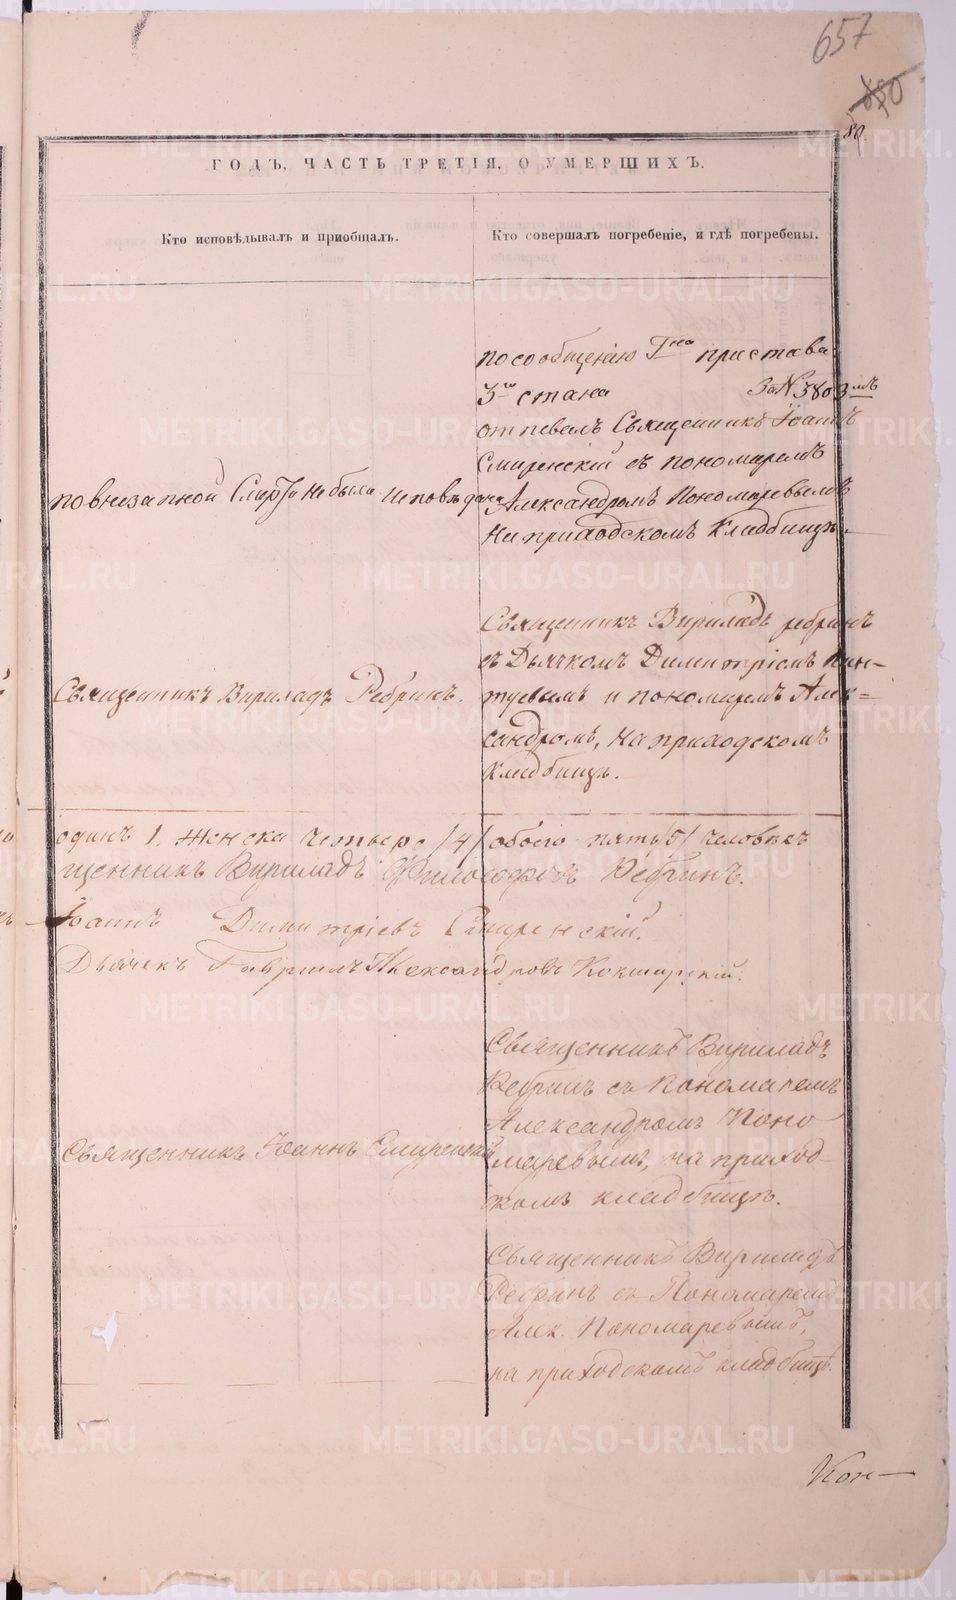 657
80
ГОДЪ, ЧАСТЬ ТРЕТІЯ, О УМЕРШИХЪ.
Кто исповѣдывалъ и приобщалъ.
Кто совершалъ погребеніе, и гдѣ погребены.
по сообщенію Гна пристава
3го стана За № 3803мъ
отпевалъ Священникъ Іоаннъ
Смиренскій съ пономаремъ
Александромъ Пономаревымъ
на приходскомъ кладбищѣ.
по внезапной Смерти не была исповѣдана
Священникъ Вириладъ Ребринъ
съ Дьячкомъ Димитріемъ
и пономаремъ Алек=
сандромъ, на приходскомъ
кладбищѣ.
Священникъ Вириладъ Ребринъ.
одинъ 1. женска четыре /4/ обоего пять /5/ человѣкъ
щенникъ Вириладъ Философовъ Ребринъ.
Іоаннъ Димитріевъ Смиренскій.
Дьячекъ Гавріилъ Александровъ Кокшарскій.
Священникъ Вириладъ
Ребринъ съ Пономаремъ
Александромъ Поно
маревымъ, на приход-
скомъ кладбищѣ.
Священникъ Іоаннъ Смиренскій
Священникъ Вириладъ
Ребринъ съ Пономаремъ
Алек. Пономаревымъ,
на приходскомъ кладбищѣ.
Кон—
METRIKI.GASO-URAL.RU